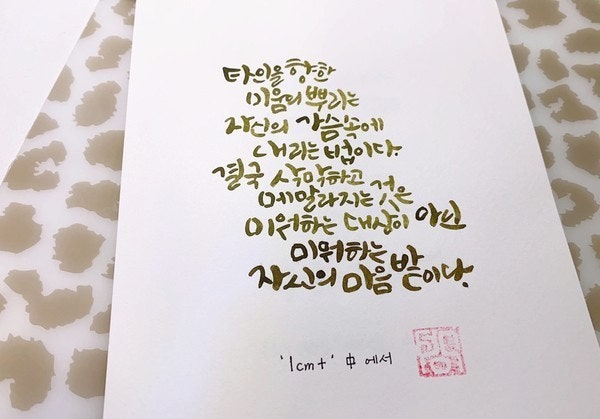 타인을 향한
미움의 뿌리는
자신의 가슴속에
내리는 법이다.
결국 삭막하고
메말라지는 것은
미워하는 대상이 아닌
미워하는
자신의 마음밭이다.
'1cm+' 中 에서